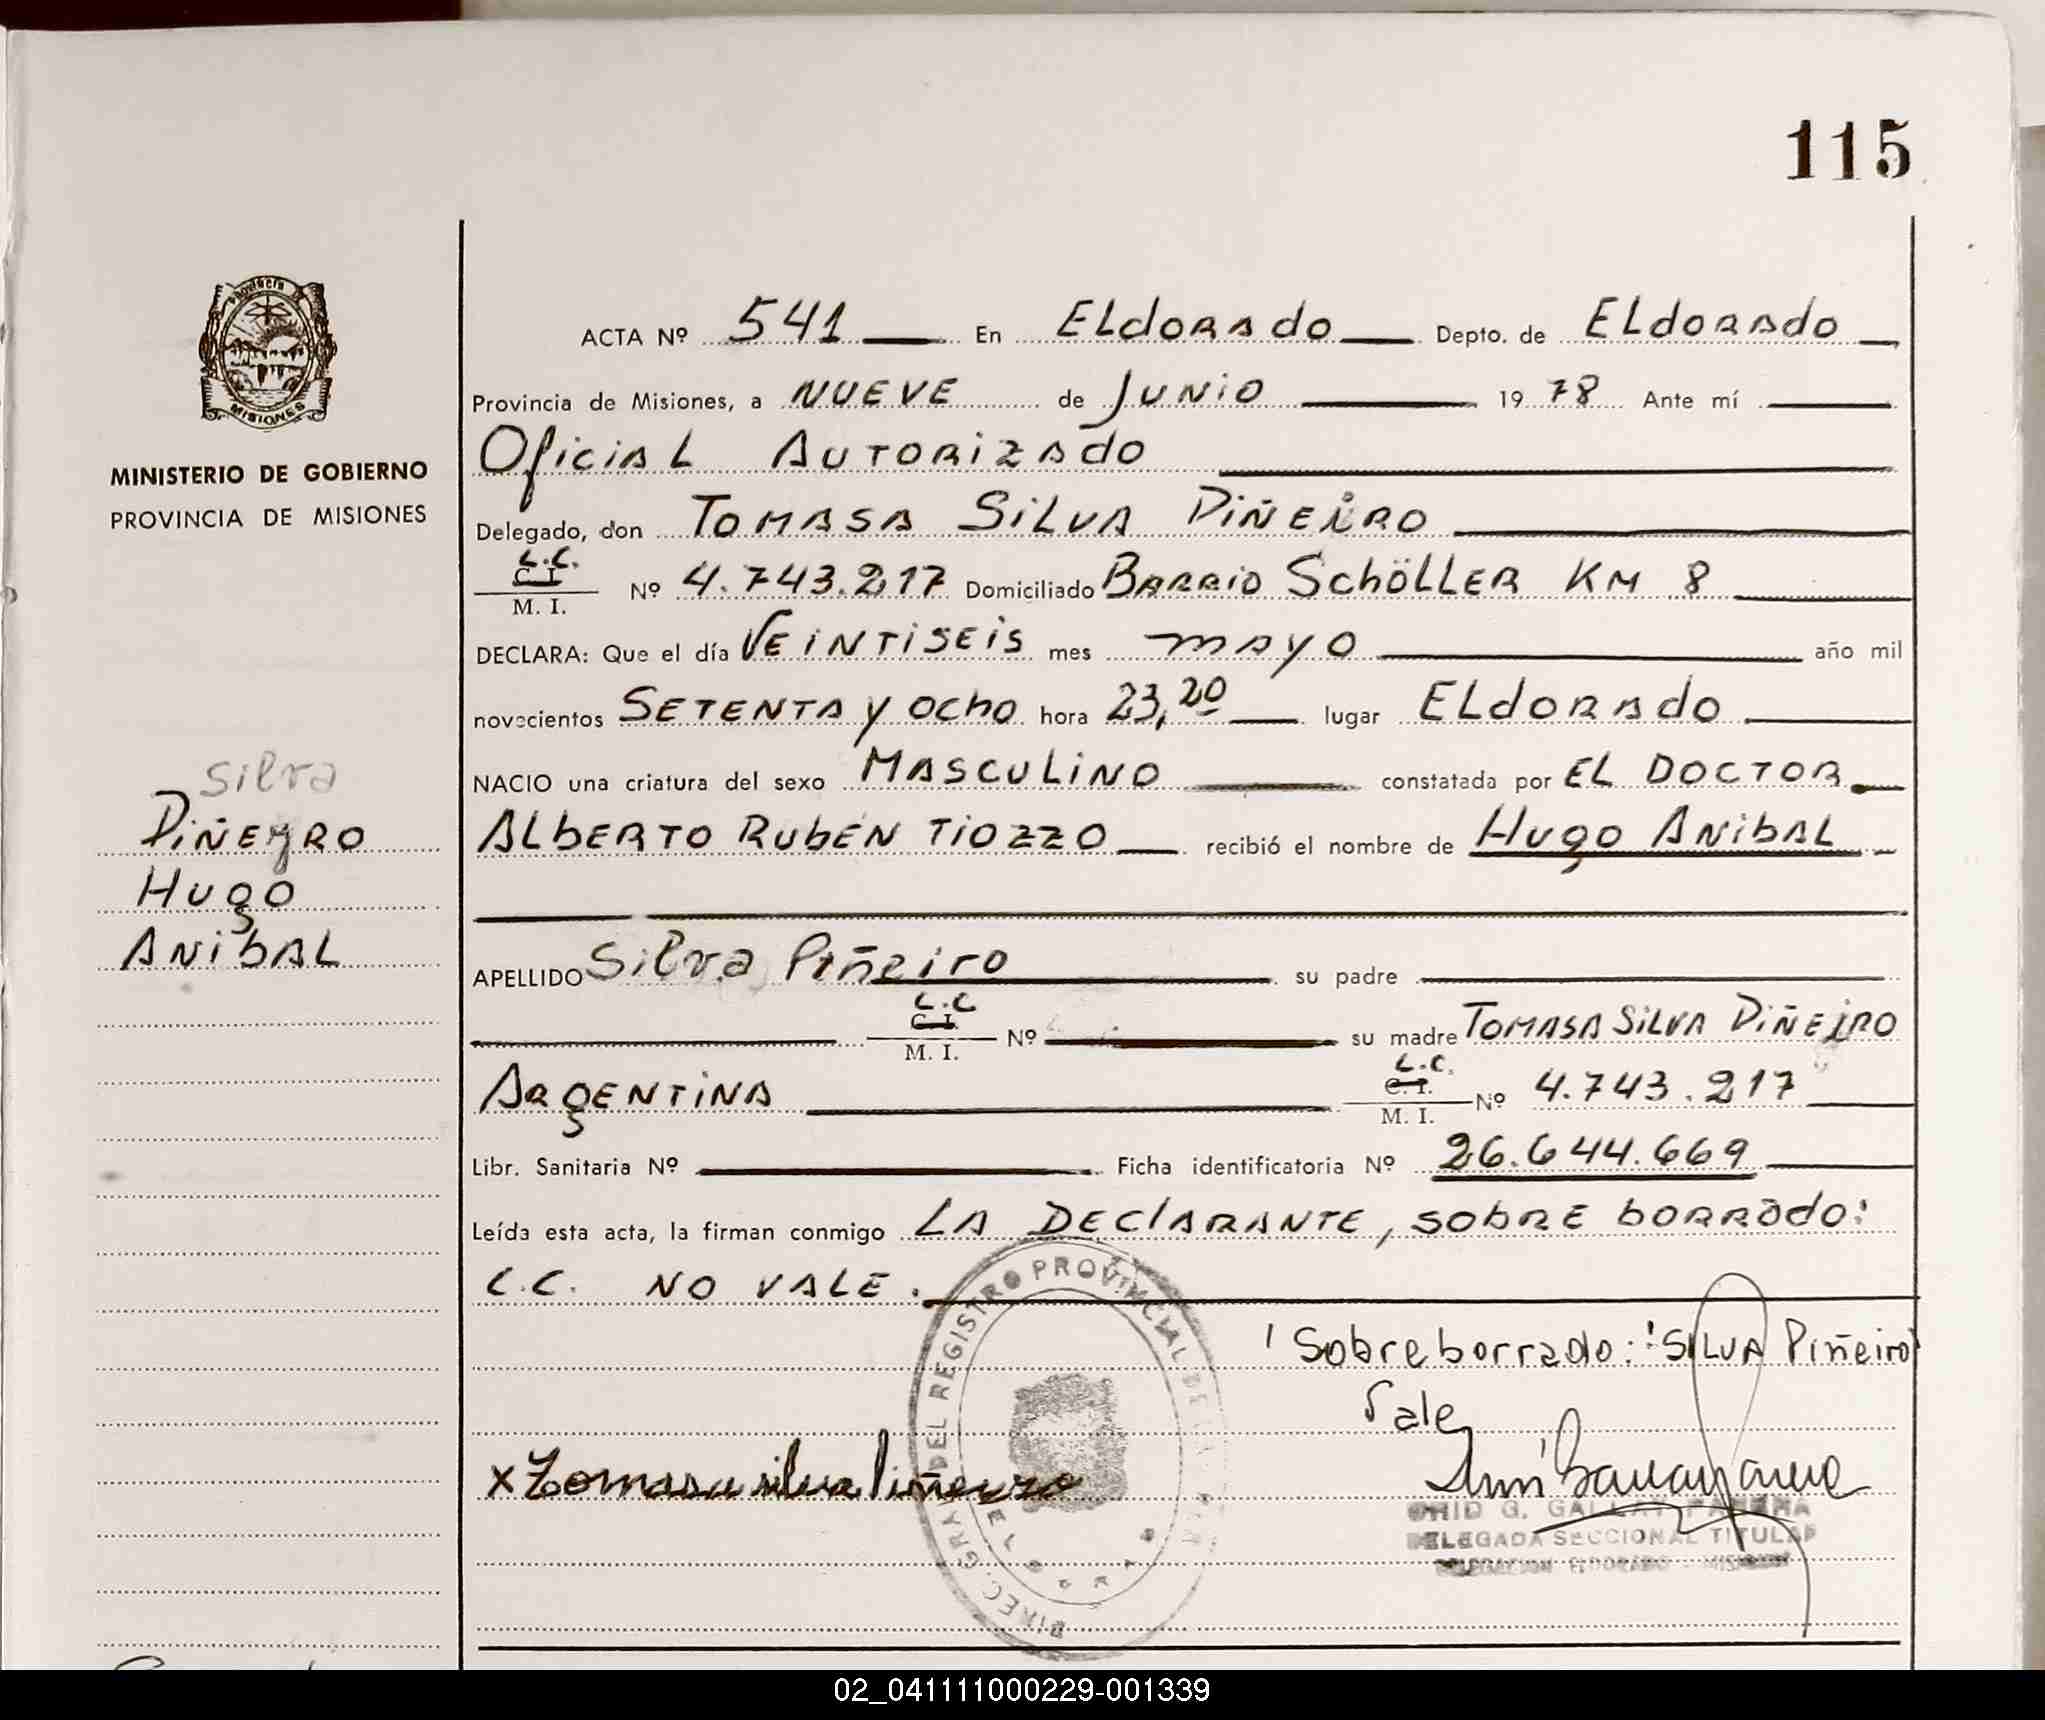 115
Provincia de
MISIONES
MINISTERIO DE GOBIERNO
PROVINCIA DE MISIONES
Silva
PIÑEYRO
HUGO
ANIBAL
ACTA Nº 541 En ELDORADO Depto. de ELDORADO
Provincia de Misiones, a NUEVE de JUNIO 1978 Ante mí
OFICIAL AUTORIZADO
Delegado, don TOMASA SILVA PIÑEIRO
L.C.
C. I.
M. I. Nº 4.743.217 Domiciliado BARRIO SCHÖLLER KM 8
DECLARA: Que el día VEINTISEIS mes MAYO año mil
novecientos SETENTA Y OCHO hora 23,20 lugar ELDORADO
NACIO una criatura del sexo MASCULINO constatada por EL DOCTOR
ALBERTO RUBEN TIOZZO recibió el nombre de HUGO ANIBAL
APELLIDO Silva Piñeiro su padre
L.C
C. I.
M. I. Nº su madre TOMASA SILVA PIÑEIRO
ARGENTINA L.C. C. I. M. I. Nº 4.743.217
Libr. Sanitaria Nº Ficha identificatoria Nº 26.644.669
Leída esta acta, la firman conmigo LA DECLARANTE, SOBRE BORRADO:
L.C. NO VALE.
Sobre borrado: "SILVA Piñeiro"
Vale
x Tomasa silva Piñeyro
DIREC. GRAL. DEL REGISTRO PROVINCIAL DE LAS
G.
DELEGADA SECCIONAL TITULAR
DELEGACION ELDORADO - MISIONES
02_041111000229-001339